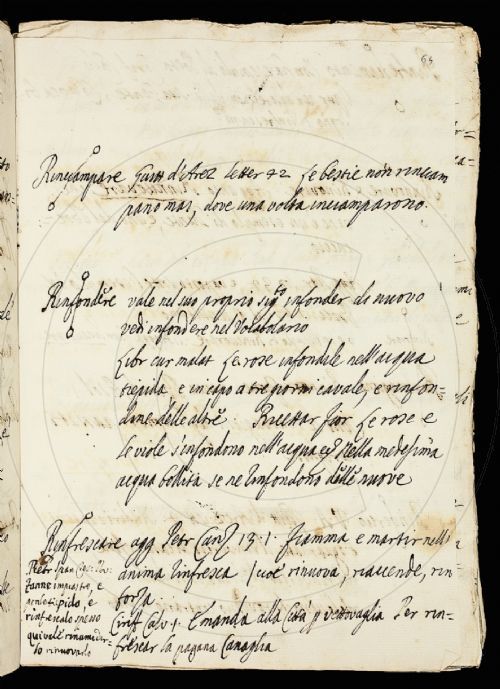 64
Rincampare Guitt d'Arez letter 42 Le bestie non rincam
pano mai, dove una volta inciamparono.
Rinfondere vale nel suo proprio sigto infonder di nuovo
vedi infondere nel Vocabolario
Libr cur malat Le rose infondile nell'acqua
tiepida e in capo a tre giorni cavale, e rinfon-
dine delle altre. Ricettar fior Le rose e
le viole s'infondono nell'acqua Nella medesima
acqua bollita se ne rinfondono delle nuove
Rinfrescare agg Petr Canz 13. 1. Fiamma e martir nell'
anima rinfresca / cioè rinnova, riaccende, rin
forza.
Cirif Calv. 1. E manda alla Città p vettovaglia Per rin-
frescar la pagana Canaglia
fanne impiastro, e
ponlo tiepido, e
rinfrescalo spesso
qui vale rinumidir-
lo rinnovarlo